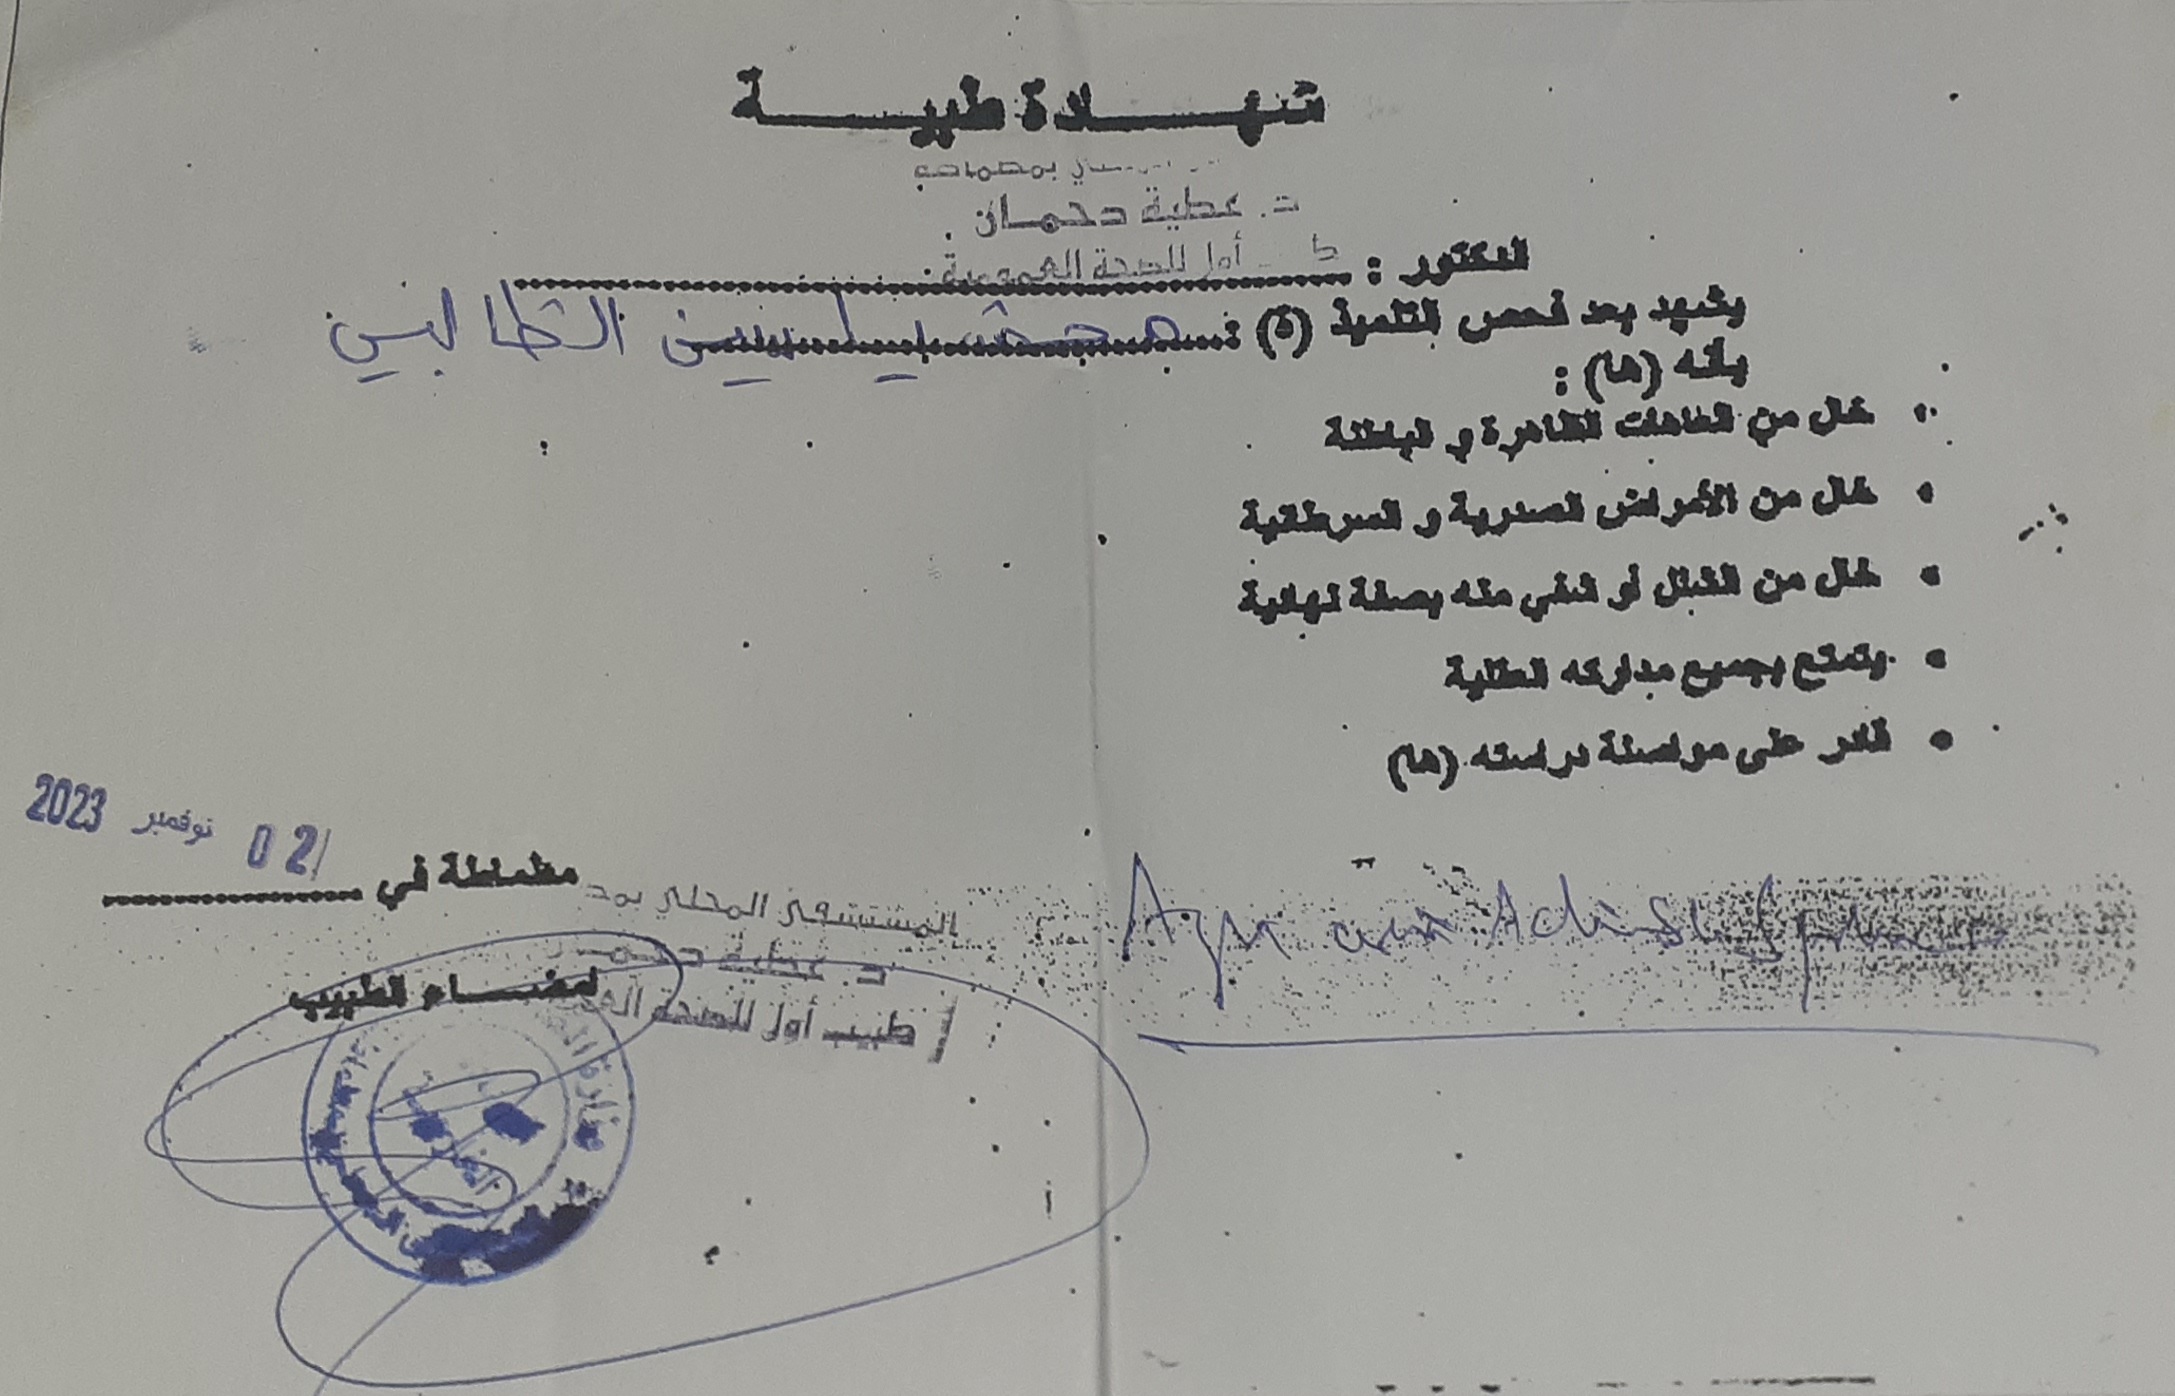 شهادة طبية
د. عطية دحمان
طبيب أول للصحة العمومية
الدكتور :
يشهد بعد فحص التلميذ (ة) :
بأنه (ها) :
• خال من العاهات الظاهرة و الباطنة
• خال من الأمراض الصدرية و السرطانية
• خال من الشلل أو شفي منه بصفة نهائية
• يتمتع بجميع مداركه العقلية
• قادر على مواصلة دراسته (ها)
مطماطة في 02 نوفمبر 2023
المستشفى المحلي
د. عطية
إمضاء الطبيب
طبيب أول للصحة